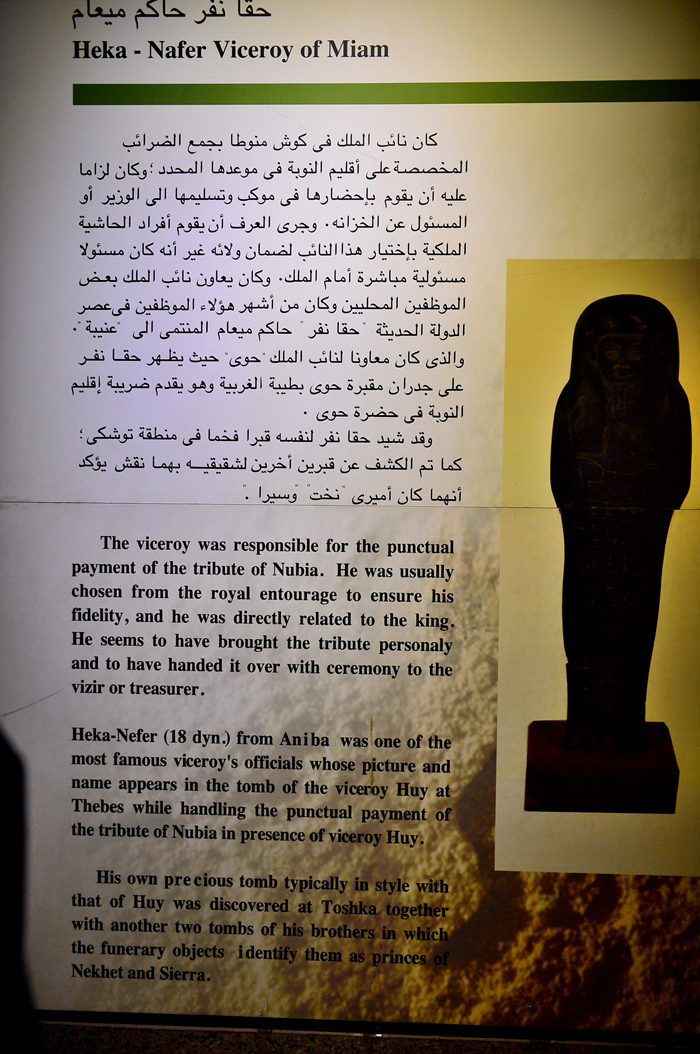 حقا نفر حاكم ميعام
Heka - Nafer Viceroy of Miam
كان نائب الملك فى كوش منوطا بجمع الضرائب
المخصصة على أقليم النوبة فى موعدها المحدد ؛ وكان لزاما
عليه أن يقوم بإحضارها فى موكب وتسليمها الى الوزير أو
المسئول عن الخزانه. وجرى العرف أن يقوم أفراد الحاشية
الملكية بإختيار هذا النائب لضمان ولائه غير أنه كان مسئولا
مسئولية مباشرة أمام الملك. وكان يعاون نائب الملك بعض
الموظفين المحليين وكان من أشهر هؤلاء الموظفين فى عصر
الدولة الحديثة "حقا نفر" حاكم ميعام المنتمى الى "عنيبة".
والذى كان معاونا لنائب الملك "حوى" حيث يظهر حقا نفر
على جدران مقبرة حوى بطيبة الغربية وهو يقدم ضريبة إقليم
النوبة فى حضرة حوى .
وقد شيد حقا نفر لنفسه قبرا فخما فى منطقة توشكى؛
كما تم الكشف عن قبرين أخرين لشقيقيه بهما نقش يؤكد
أنهما كان أميرى "نخت" "وسيرا".
The viceroy was responsible for the punctual
payment of the tribute of Nubia. He was usually
chosen from the royal entourage to ensure his
fidelity, and he was directly related to the king.
He seems to have brought the tribute personaly
and to have handed it over with ceremony to the
vizir or treasurer.
Heka-Nefer (18 dyn.) from Aniba was one of the
most famous viceroy's officials whose picture and
name appears in the tomb of the viceroy Huy at
Thebes while handling the punctual payment of
the tribute of Nubia in presence of viceroy Huy.
His own precious tomb typically in style with
that of Huy was discovered at Toshka together
with another two tombs of his brothers in which
the funerary objects identify them as princes of
Nekhet and Sierra.